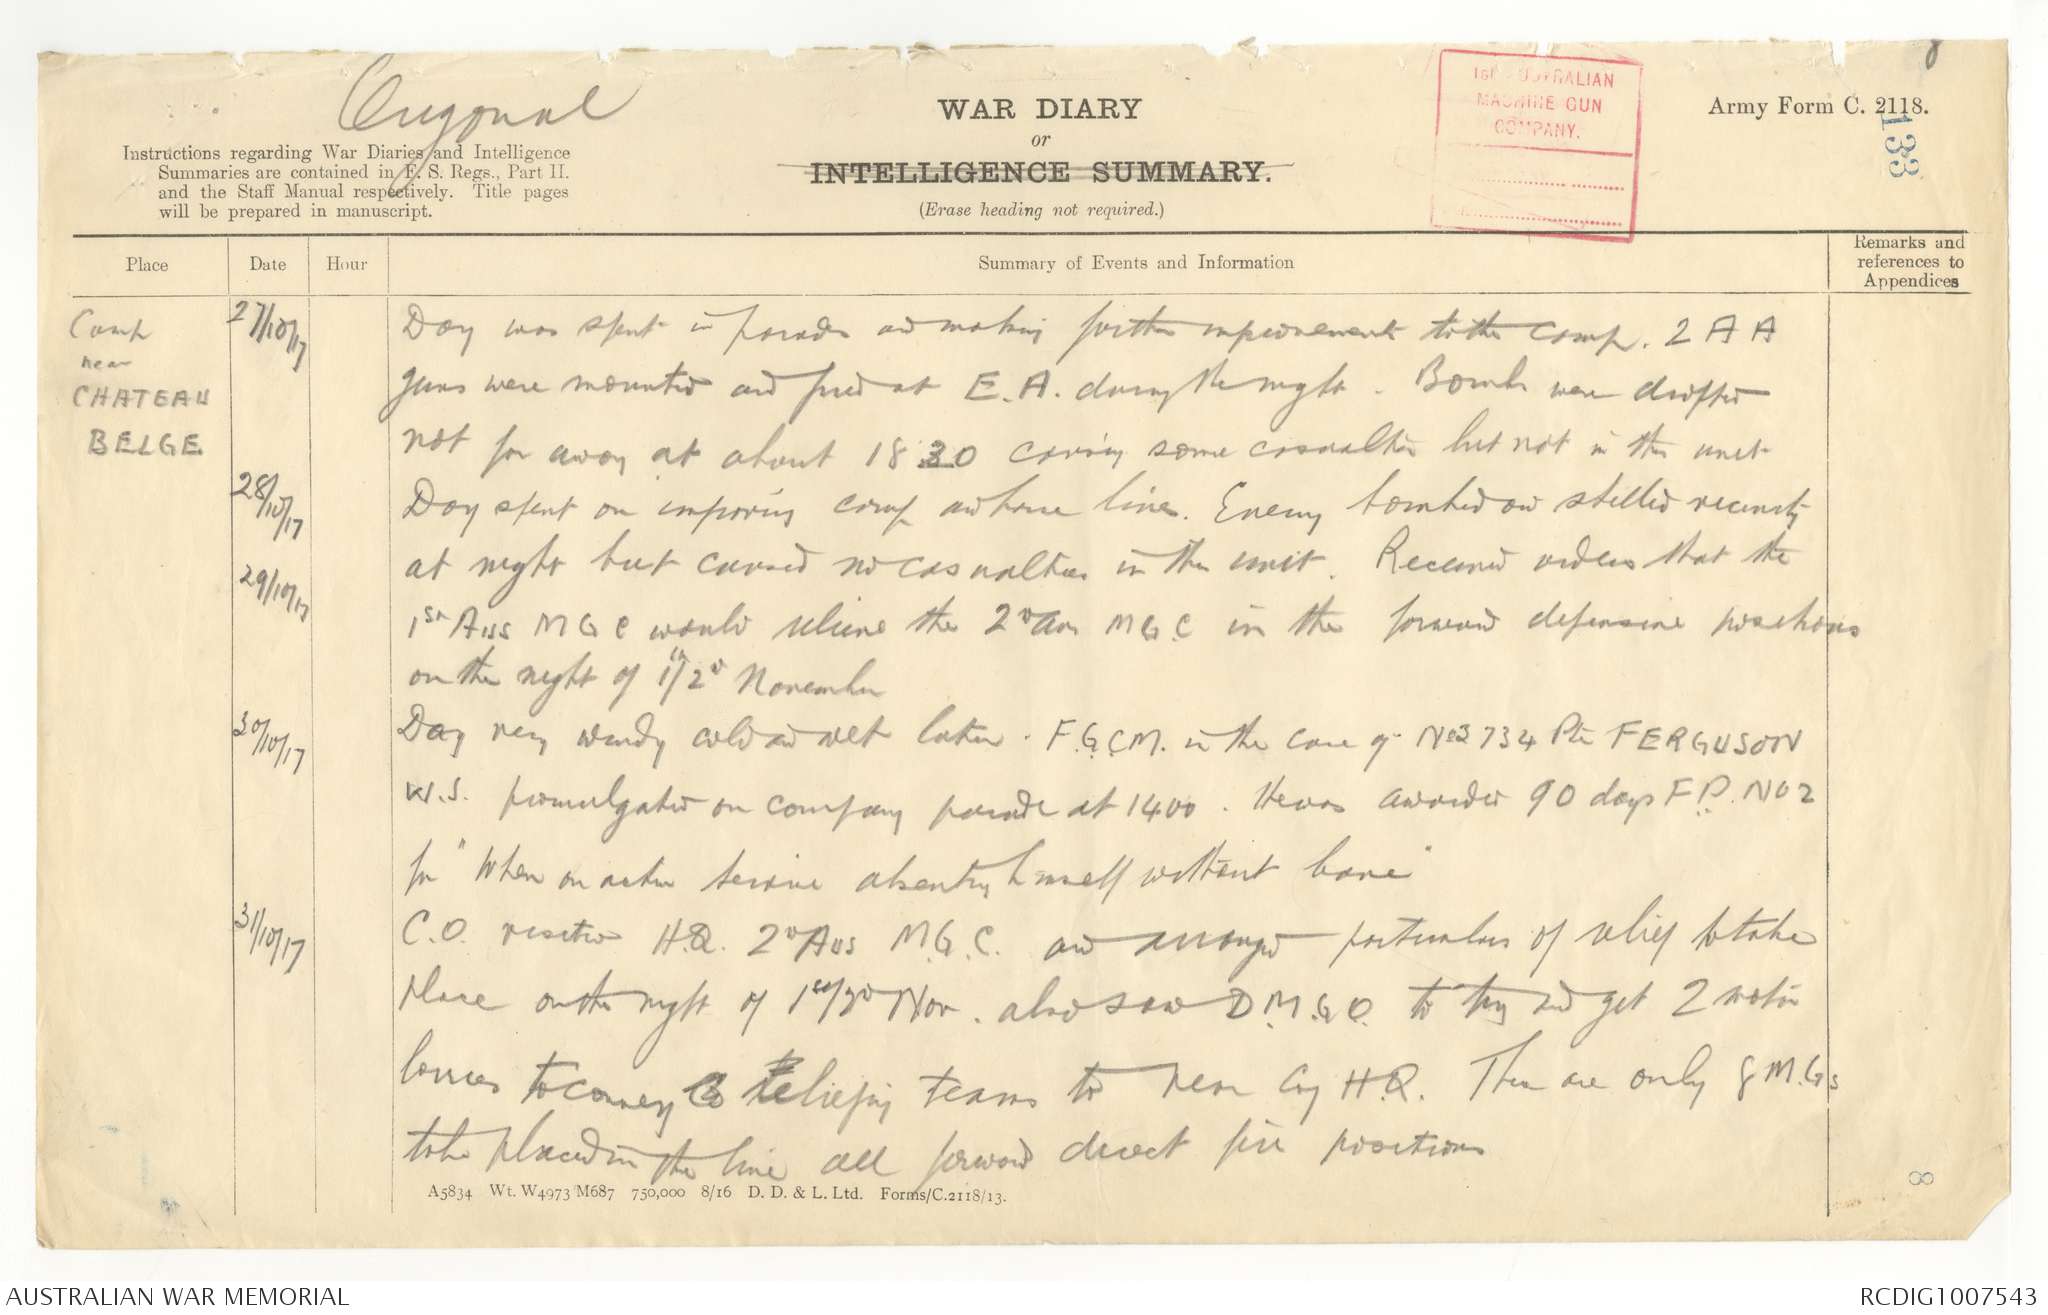 Original
8
1ST AUSTRALIAN
MACHINE GUN
COMPANY.
WAR DIARY
or
INTELLIGENCE SUMMARY.
(Erase heading not required.)
Army Form C. 2118.
133
Instructions regarding War Diaries and Intelligence
Summaries are contained in F. S. Regs., Part II.
and the Staff Manual respectively. Title pages
will be prepared in manuscript.
Place Date Hour Summary of Events and Information Remarks and references to Appendices
Camp
near
CHATEAU
BELGE
27/10/17 Day was spent in parades and making further improvements to the camp. 2 A A
guns were mounted and fired at E.A. during the night. Bombs were dropped
not far away at about 1830 causing some casualties but not in this unit
28/10/17 Day spent on improving camp and horse lines. Enemy bombed and shelled vicinity
at night but caused no casualties in this unit. Received orders that the
29/10/17 1st Aus M G C would relieve the 2nd Aus M G C in the forward defensive positions
on the night of 1st/2nd November
30/10/17 Day very windy cold and wet later. F.G.C.M. in the case of No 3734 Pte FERGUSON
W.S. promulgated on company parade at 1400. He was awarded 90 days F.P. No 2
for "When on active service absenting himself without leave"
31/10/17 C.O. visited H.Q. 2nd Aus M.G.C. and arranged particulars of relief to take
place on the night of 1st/2nd Nov. also saw D.M.G.O. to try and get 2 motor
lorries to convey relieving teams to near Coy H.Q. There are only 8 M.G.s
to be placed in the line all forward direct fire positions
A5834 Wt. W4973/M687 750,000 8/16 D. D. & L. Ltd. Forms/C.2118/13.
8
AUSTRALIAN WAR MEMORIAL
RCDIG1007543